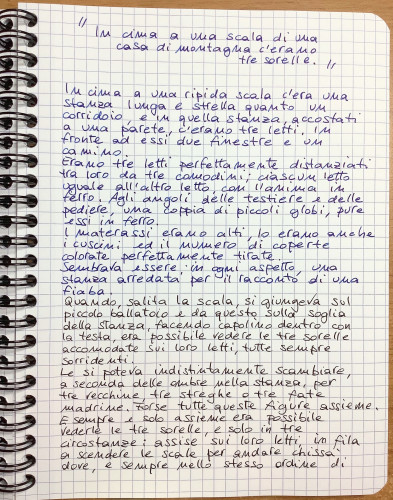 " In cima a una scala di una
casa di montagna c'erano
tre sorelle. "
In cima a una ripida scala c'era una
stanza lunga e stretta quanto un
corridoio, e in quella stanza, accostati
a una parete, c'erano tre letti. In
fronte ad essi due finestre e un
camino.
Erano tre letti perfettamente distanziati
tra loro da tre comodini; ciascun letto
uguale all'altro letto, con l'anima in
ferro. Agli angoli delle testiere e delle
pediere, una coppia di piccoli globi, pure
essi in ferro.
I materassi erano alti, lo erano anche
i cuscini ed il numero di coperte
colorate perfettamente tirate.
Sembrava essere, in ogni aspetto, una
stanza arredata per il racconto di una
fiaba.
Quando, salita la scala, si giungeva sul
piccolo ballatoio e da questo sulla soglia
della stanza, facendo capolino dentro con
la testa, era possibile vedere le tre sorelle
accomodate sui loro letti, tutte sempre
sorridenti.
Le si poteva indistintamente scambiare,
a seconda delle ombre nella stanza, per
tre vecchine, tre streghe o tre fate
madrine. Forse tutte queste figure assieme.
E sempre e solo assieme era possibile
vederle le tre sorelle, e solo in tre
circostanze: assise sui loro letti, in fila
a scendere le scale per andare chissà
dove, e sempre nello stesso ordine di